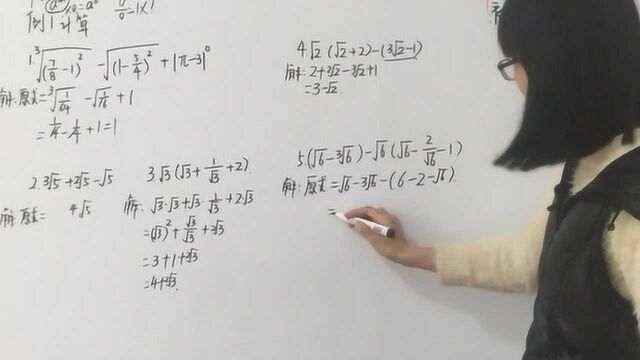 例1 计算
1. ³√(7/8-1)² - √(1-5/4)² + |π-3|⁰
解:原式=³√1/64 - √1/16 + 1
=1/4-1/4+1=1
2. 3√5+2√5-√5
解:原式= 4√5
3. √3(√3+1/√3+2)
解: √3·√3+√3·1/√3+2√3
=(√3)²+√3/√3+2√3
=3+1+2√3
=4+2√3
4. √2(√2+2)-(3√2-1)
解: 2+2√2-3√2+1
=3-√2
5.(√6-3√6)-√6(√6-2/√6-1)
解:原式=√6-3√6-(6-2-√6)
=